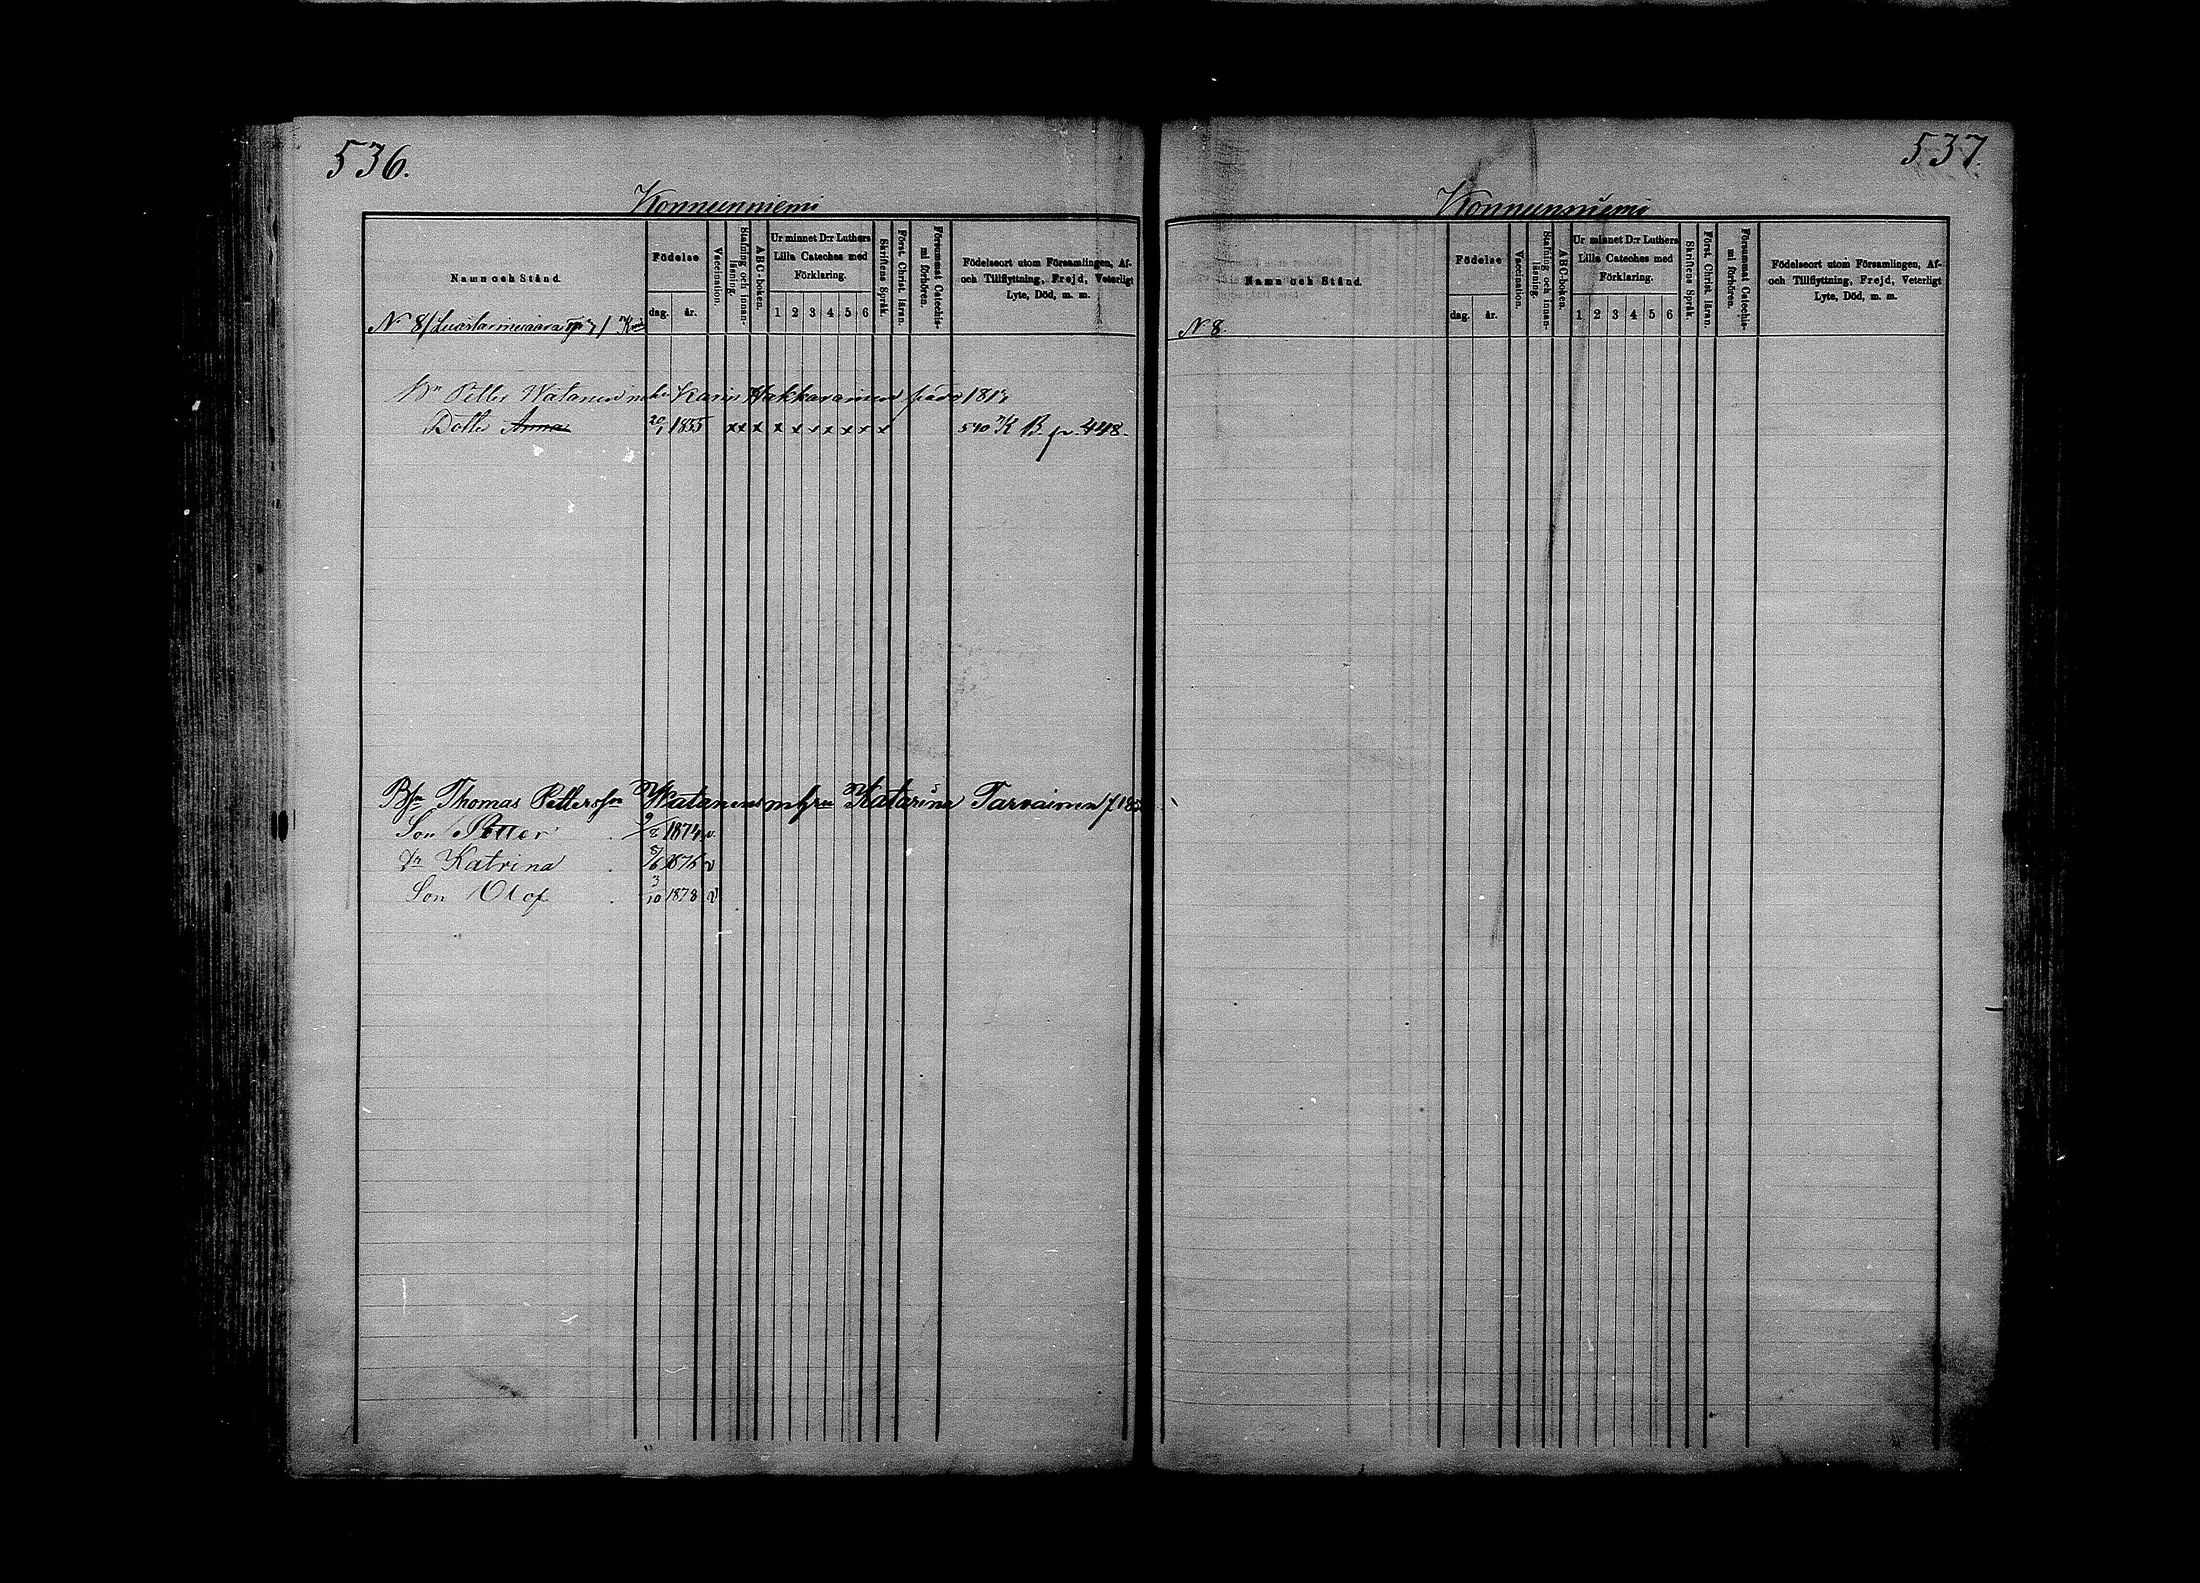 536.
Konnunniemi
Namn och Stånd.
Födelse
dag.
år.
Vaccination.
Stafning och innan-läsning.
ABC-boken.
Ur minnet D:r Luthers
Lilla Cateches med
Förklaring.
1 2 3 4 5 6
Skriftens Språk.
Först. Christ. läran.
Försummat Catechis-
mi förhören.
Födelseort utom Församlingen, Af-
och Tillflyttning, Frejd, Veterligt
Lyte, Död, m. m.
N 8
Petter Watanen Karin Hakkarainen
Dotter Anna 20/1 1855 x x x x x x x x x x 540 K B. p. 448.
Thomas Petterss:n Watanens m hru Katarina Tarvainen f 185
Son Petter 9/8 1874 v.
Dr Katrina 8/6 1876 v
Son Olof 3/10 1878 v
537.
Konnunniemi
Namn och Stånd.
Födelse
dag.
år.
Vaccination.
Stafning och innan-läsning.
ABC-boken.
Ur minnet D:r Luthers
Lilla Cateches med
Förklaring.
1 2 3 4 5 6
Skriftens Språk.
Först. Christ. läran.
Försummat Catechis-
mi förhören.
Födelseort utom Församlingen, Af-
och Tillflyttning, Frejd, Veterligt
Lyte, Död, m. m.
N 8.